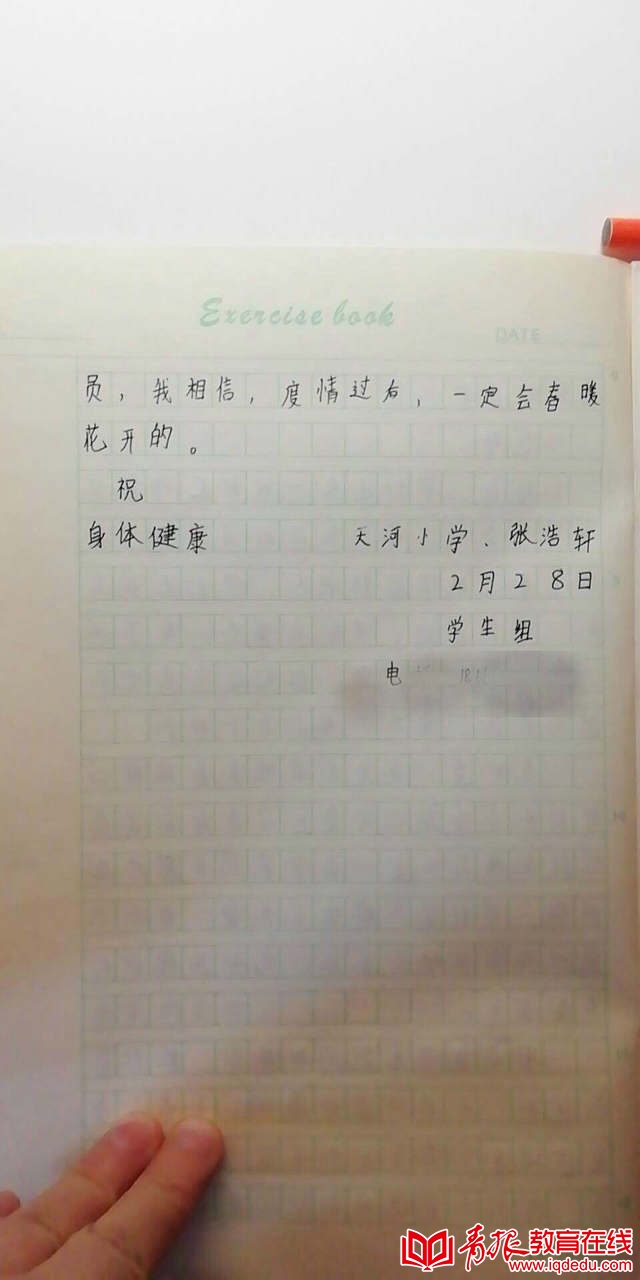 Exercise book
DATE
员，我相信，度情过后，一定会春暖
花开的。
祝
身体健康
天河小学、张浩轩
2月28日
学生组
电
青报教育在线
www.iqdedu.com